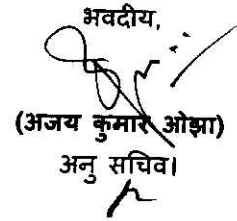 भवदीय,
(अजय कुमार ओझा)
अनु सचिव।